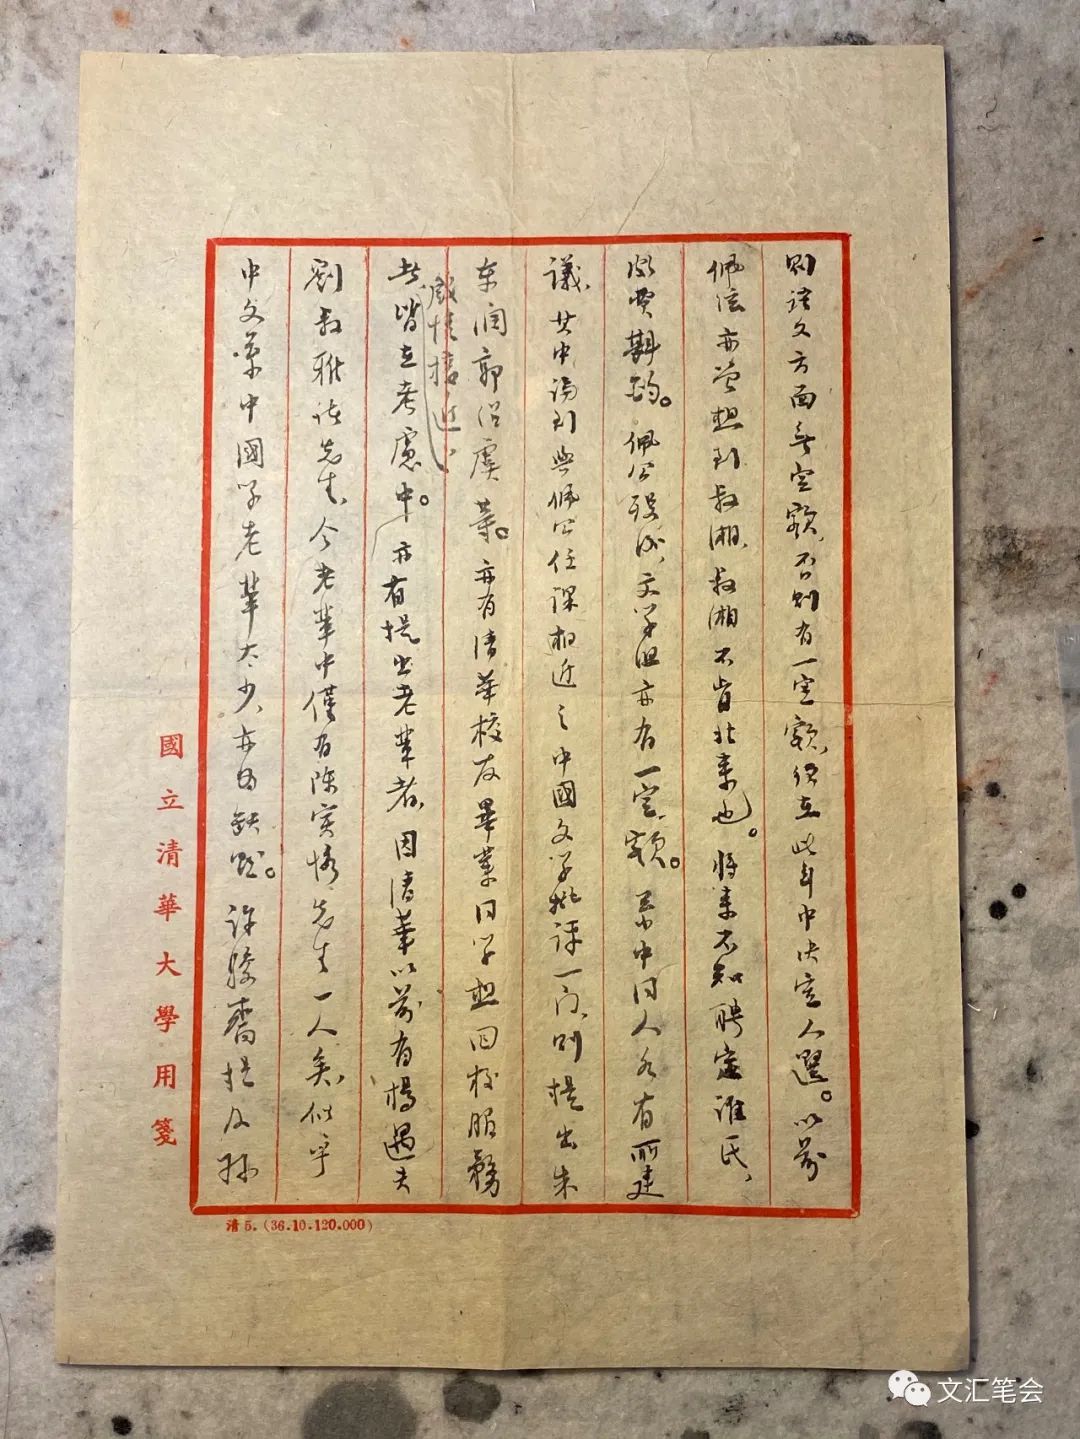 則語文方面無空額，否則有一空額，須在此年中決定人選。以前
佩弦亦曾想到叔湘，叔湘不肯北來也。將來不知聘定誰氏，
頗費斟酌。佩公殁後，文學組亦有一空額。系中同人各有所建
議，其中論到與佩公任課相近之中國文學批評一門，則提出朱
东润郭绍虞等。亦有清華校友畢業同學想回校服務
戚惟接近
者，皆在考慮中。亦有提出老輩者，因清華以前有楊遇夫
劉叔雅諸先生，今老輩中僅有陳寅恪先生一人矣，似乎
中文系中國學老輩太少，亦為缺點。許駿齋提及孫
國立清華大學用箋
清5.(36.10.120.000)
文汇笔会